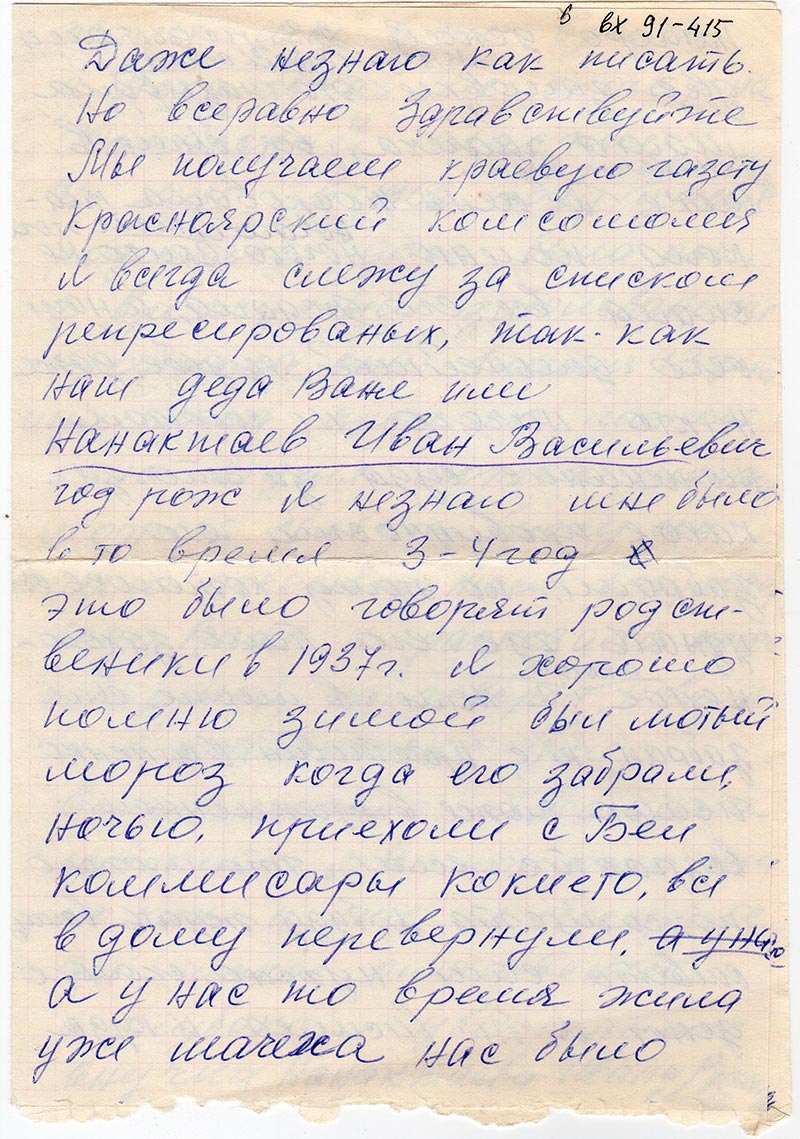 в вх 91-415
Даже незнаю как писать.
Но всеравно Здравствуйте
Мы получаем краевую газету
Красноярский комсомолец
Я всегда слежу за списком
репресированых, так-как
наш деда Ваня или
Нанактаев Иван Васильевич
год рож я незнаю мне было
в то время 3-4 год
это было говорят родст-
веники в 1937г. Я хорошо
помню зимой был лютый
мороз когда его забрали,
ночью, приехали с Беи
коммисары кокието, всё
в дому перевернули, а у нас
а у нас то время жила
уже мачеха нас было